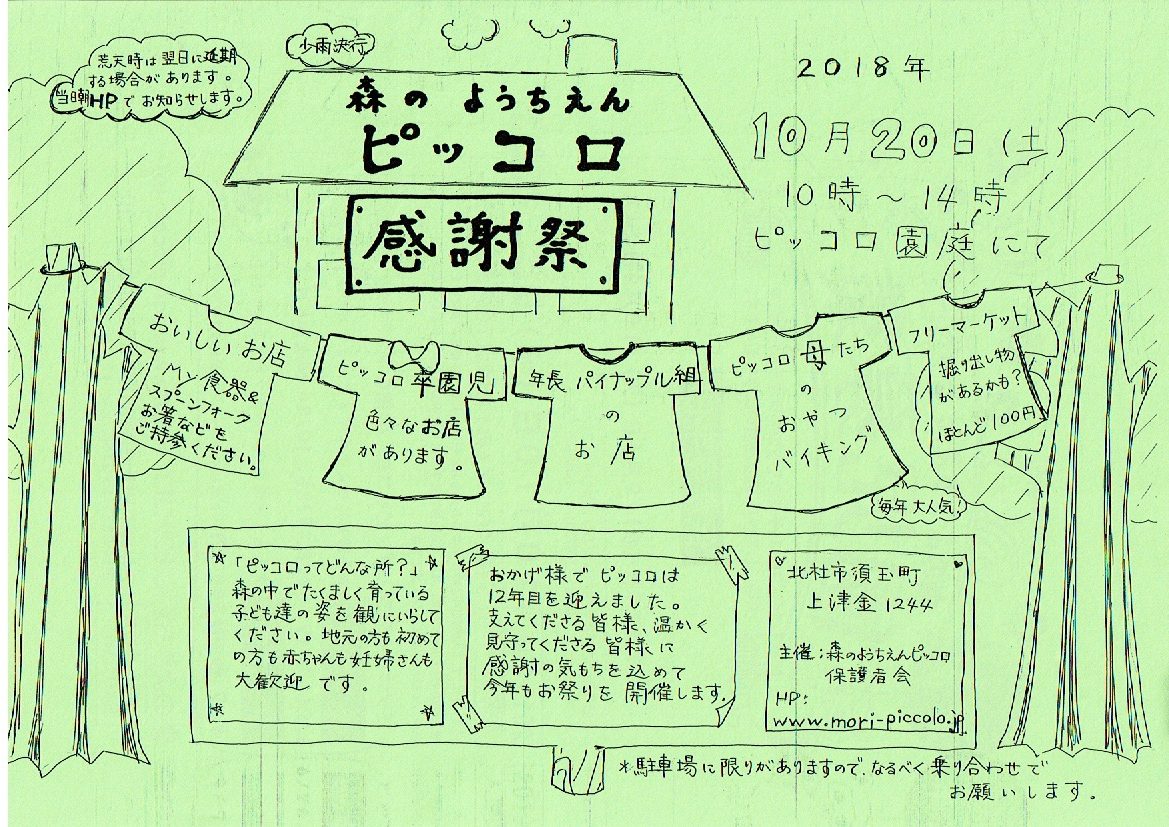 荒天時は翌日に延期
する場合があります。
当日朝HPでお知らせします。
少雨決行
森のようちえん
ピッコロ
感謝祭
2018年
10月20日(土)
10時～14時
ピッコロ園庭にて
おいしいお店
My食器&
スプーンフォーク
お箸などを
ご持参ください。
ピッコロ卒園児
色々なお店
があります。
年長パイナップル組
の
お店
ピッコロ母たち
の
おやつ
バイキング
毎年大人気!
フリーマーケット
掘り出し物
があるかも?
ほとんど100円
「ピッコロってどんな所?」
森の中でたくましく育っている
子ども達の姿を観にいらして
ください。地元の方も初めて
の方も赤ちゃんも妊婦さんも
大歓迎です。
おかげ様でピッコロは
12年目を迎えました。
支えてくださる皆様、温かく
見守ってくださる皆様に
感謝の気もちを込めて
今年もお祭りを開催します。
北杜市須玉町
上津金1244
主催:森のようちえんピッコロ
保護者会
HP:
www.mori-piccolo.jp
*駐車場に限りがありますので、なるべく乗り合わせで
お願いします。